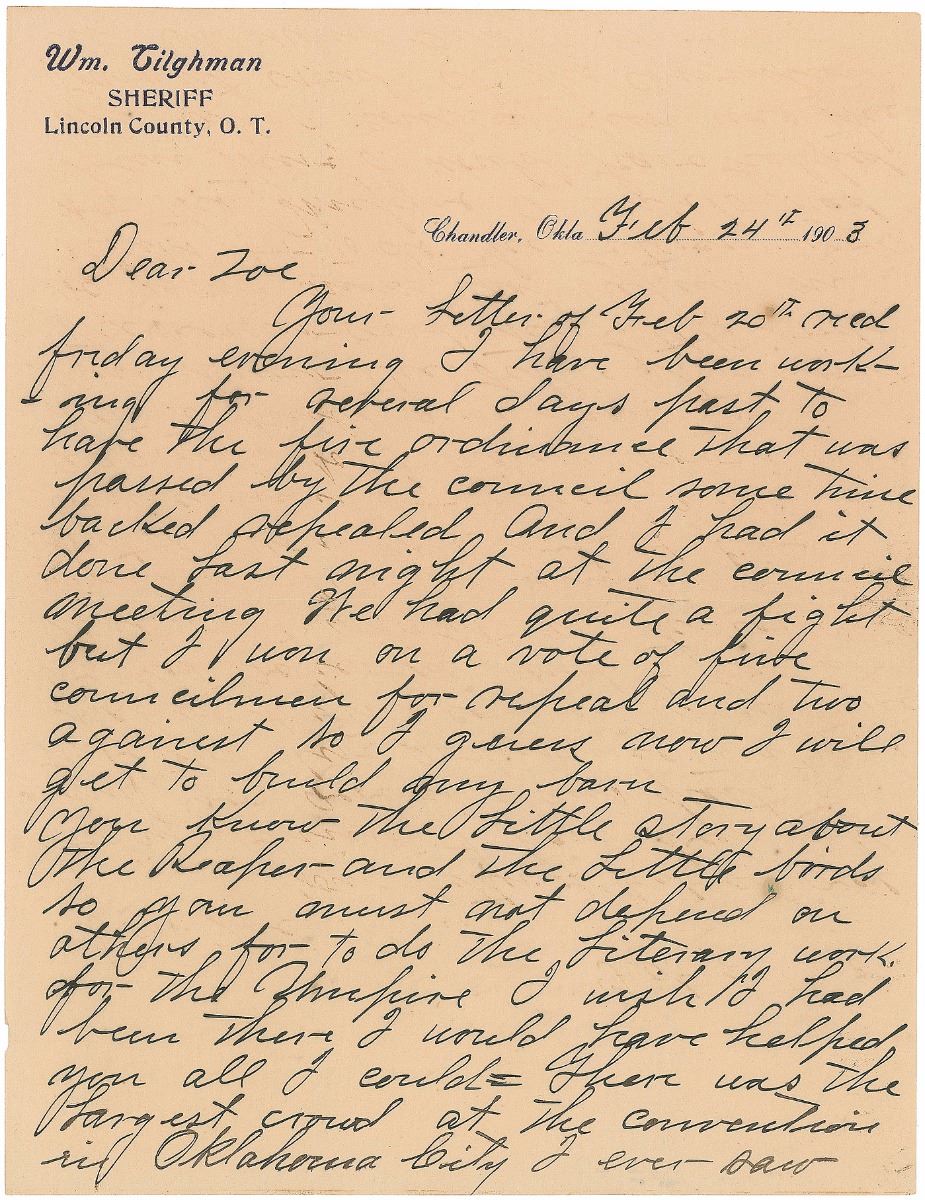 Wm. Tilghman
SHERIFF
Lincoln County, O. T.
Chandler, Okla Feb 24th 1903
Dear Zoe
Your Letter of Feb 20th recd
friday evening I have been work-
-ing for several days past to
have the fire ordinance that was
passed by the council some time
backed repealed And I had it
done Last night at the council
meeting We had quite a fight
but I won on a vote of five
councilmen for repeal and two
against so I guess now I will
get to build my barn
you know the Little story about
the Reaper and the Little birds
so you must not depend on
others for to do the Literary work
for the Umpire I wish I had
been there I would have helped
you all I could = There was the
Largest crowd at the convention
in Oklahoma City I ever saw